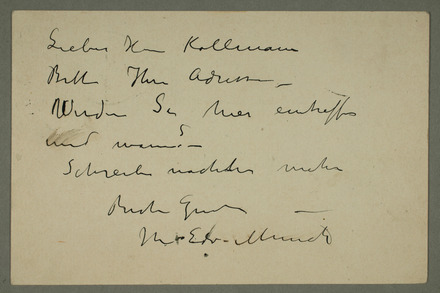 Lieber Herr Kollmann
Bitte Ihre Adresse –
Werden Sie hier eintreffen
und wann? –
Schreibe nächstens mehr
Beste Grüsse –
Ihr Edv. Munch